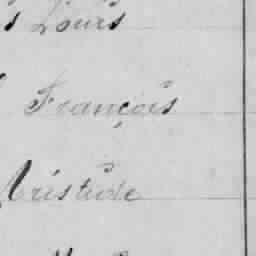 s Louis
François
Aristide